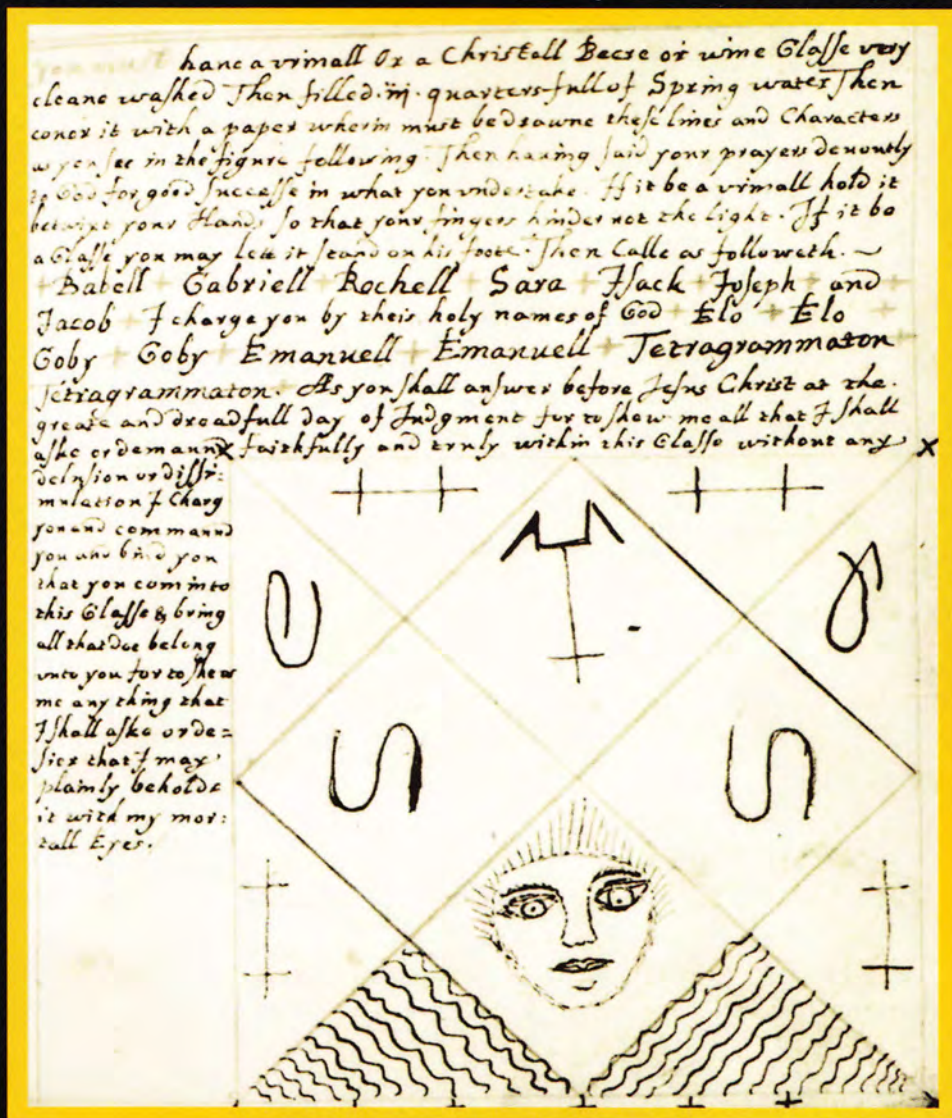 you must haue a vrinall Or a Christall Beere or wine Glasse very
cleane washed Then filled .iij. quarters full of Spring water Then
couer it with a paper wherin must be drawne these lines and Characters
as you see in the figure following. Then hauing said your prayers deuoutly
to God for good successe in what you undertake. If it be a vrinall hold it
betwixt your Hands so that your fingers hinder not the light. If it be
a Glasse you may lett it stand on his foote. Then Calle as followeth. ~
+ Babell + Gabriell + Rochell + Sara + Isack + Joseph + and
Jacob + I charge you by theis holy names of God + Elo + Elo +
Goby + Goby + Emanuell + Emanuell + Tetragrammaton
Tetragrammaton. + As you shall answer before Jesus Christ at the.
greate and dreadfull day of Judgment for to shew me all that I shall
aske or demannd faithfully and truly within this Glasse without any
delusion or dissi:
mulation I Charg
you and commannd
you and bind you
that you com into
this Glasse & bring
all that doe belong
vnto you for to shew
me any thing that
I shall aske or de=
sier that I may
plainly beholde
it with my mor:
tall Eyes.